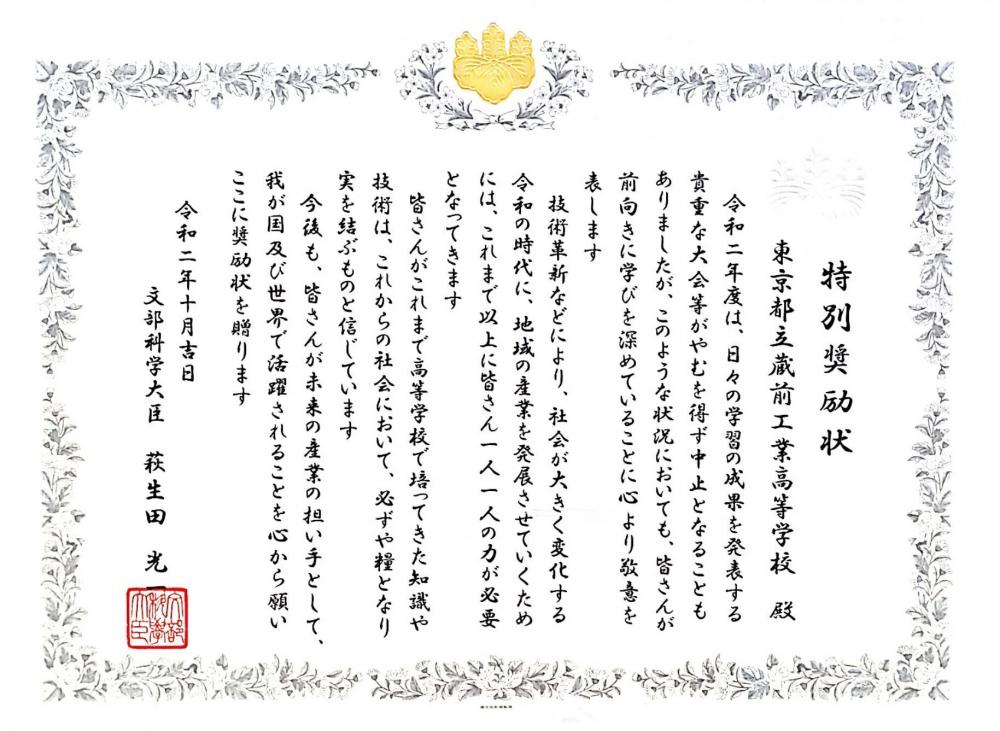 特別奨励状
東京都立蔵前工業高等学校 殿
令和二年度は、日々の学習の成果を発表する
貴重な大会等がやむを得ず中止となることも
ありましたが、このような状況においても、皆さんが
前向きに学びを深めていることに心より敬意を
表します
技術革新などにより、社会が大きく変化する
令和の時代に、地域の産業を発展させていくため
には、これまで以上に皆さん一人一人の力が必要
となってきます
皆さんがこれまで高等学校で培ってきた知識や
技術は、これからの社会において、必ずや糧となり
実を結ぶものと信じています
今後も、皆さんが未来の産業の担い手として、
我が国及び世界で活躍されることを心から願い
ここに奨励状を贈ります
令和二年十月吉日
文部科学大臣 萩生田 光一
文部科學大臣